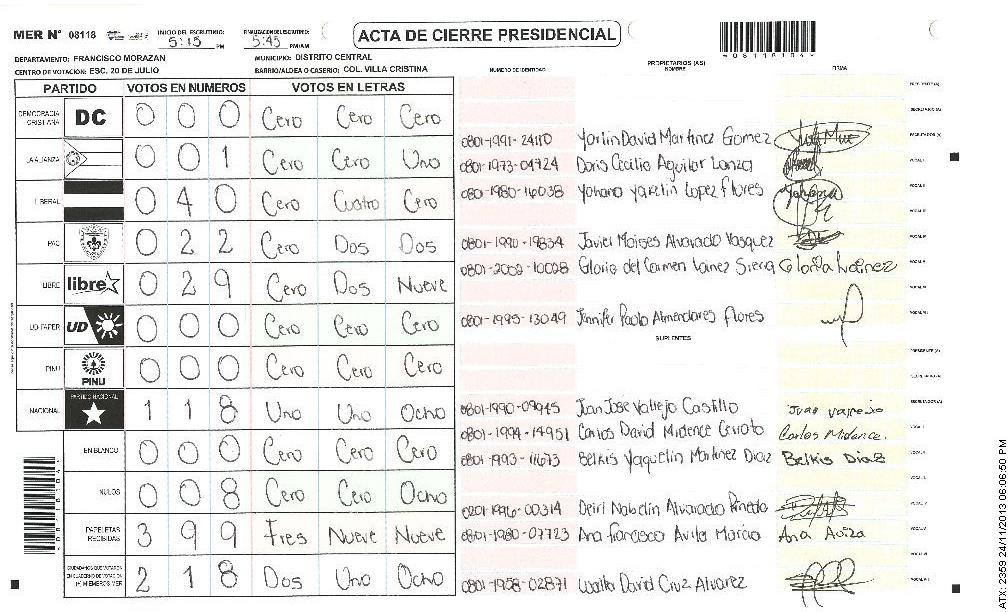 MER N° 08118 INICIO DEL ESCRUTINIO: 5:15 PM FINALIZACION DEL ESCRUTINIO: 5:45 PM/AM ACTA DE CIERRE PRESIDENCIAL
DEPARTAMENTO: FRANCISCO MORAZAN MUNICIPIO: DISTRITO CENTRAL
CENTRO DE VOTACION: ESC. 20 DE JULIO BARRIO/ALDEA O CASERIO: COL. VILLA CRISTINA
NUMERO DE IDENTIDAD PROPIETARIOS (AS) NOMBRE FIRMA
PARTIDO VOTOS EN NUMEROS VOTOS EN LETRAS
DEMOCRACIA CRISTIANA DC 0 0 0 Cero Cero Cero
LA ALIANZA 0 0 1 Cero Cero Uno
LIBERAL 0 4 0 Cero Cuatro Cero
PAC 0 2 2 Cero Dos Dos
LIBRE libre 0 2 9 Cero Dos Nueve
UD FAPER UD 0 0 0 Cero Cero Cero
PINU PINU 0 0 0 Cero Cero Cero
NACIONAL PARTIDO NACIONAL 1 1 8 Uno Uno Ocho
EN BLANCO 0 0 0 Cero Cero Cero
NULOS 0 0 8 Cero Cero Ocho
PAPELETAS RECIBIDAS 3 9 9 Tres Nueve Nueve
CIUDADANOS QUE VOTARON EN CUADERNO DE VOTACION (+) MIEMBROS MER 2 1 8 Dos Uno Ocho
0801-1991-24110 Yorlin David Martinez Gomez
0801-1973-04724 Doris Cecilia Aguilar Lanza
0801-1980-16038 Yohana Yakelin Lopez Flores
0801-1990-19834 Javier Moises Alvarado Vasquez
0801-2002-10028 Gloria del Carmen Lainez Sierra
0801-1995-13049 Jennifer Paola Almendares Flores
SUPLENTES
0801-1990-09945 Juan Jose Vallejo Castillo
0801-1994-14951 Carlos David Midence Cerrato Carlos Midence.
0801-1993-11673 Belkis Yaquelin Martinez Diaz Belkis Diaz
0801-1996-00314 Deiri Nabelin Alvarado Pineda
0801-1980-07723 Ana Francisco Avila Marcia Ana Avila
0801-1958-02871 Walter David Cruz Alvarez
ATX: 2359 24/11/2013 06:06:50 PM